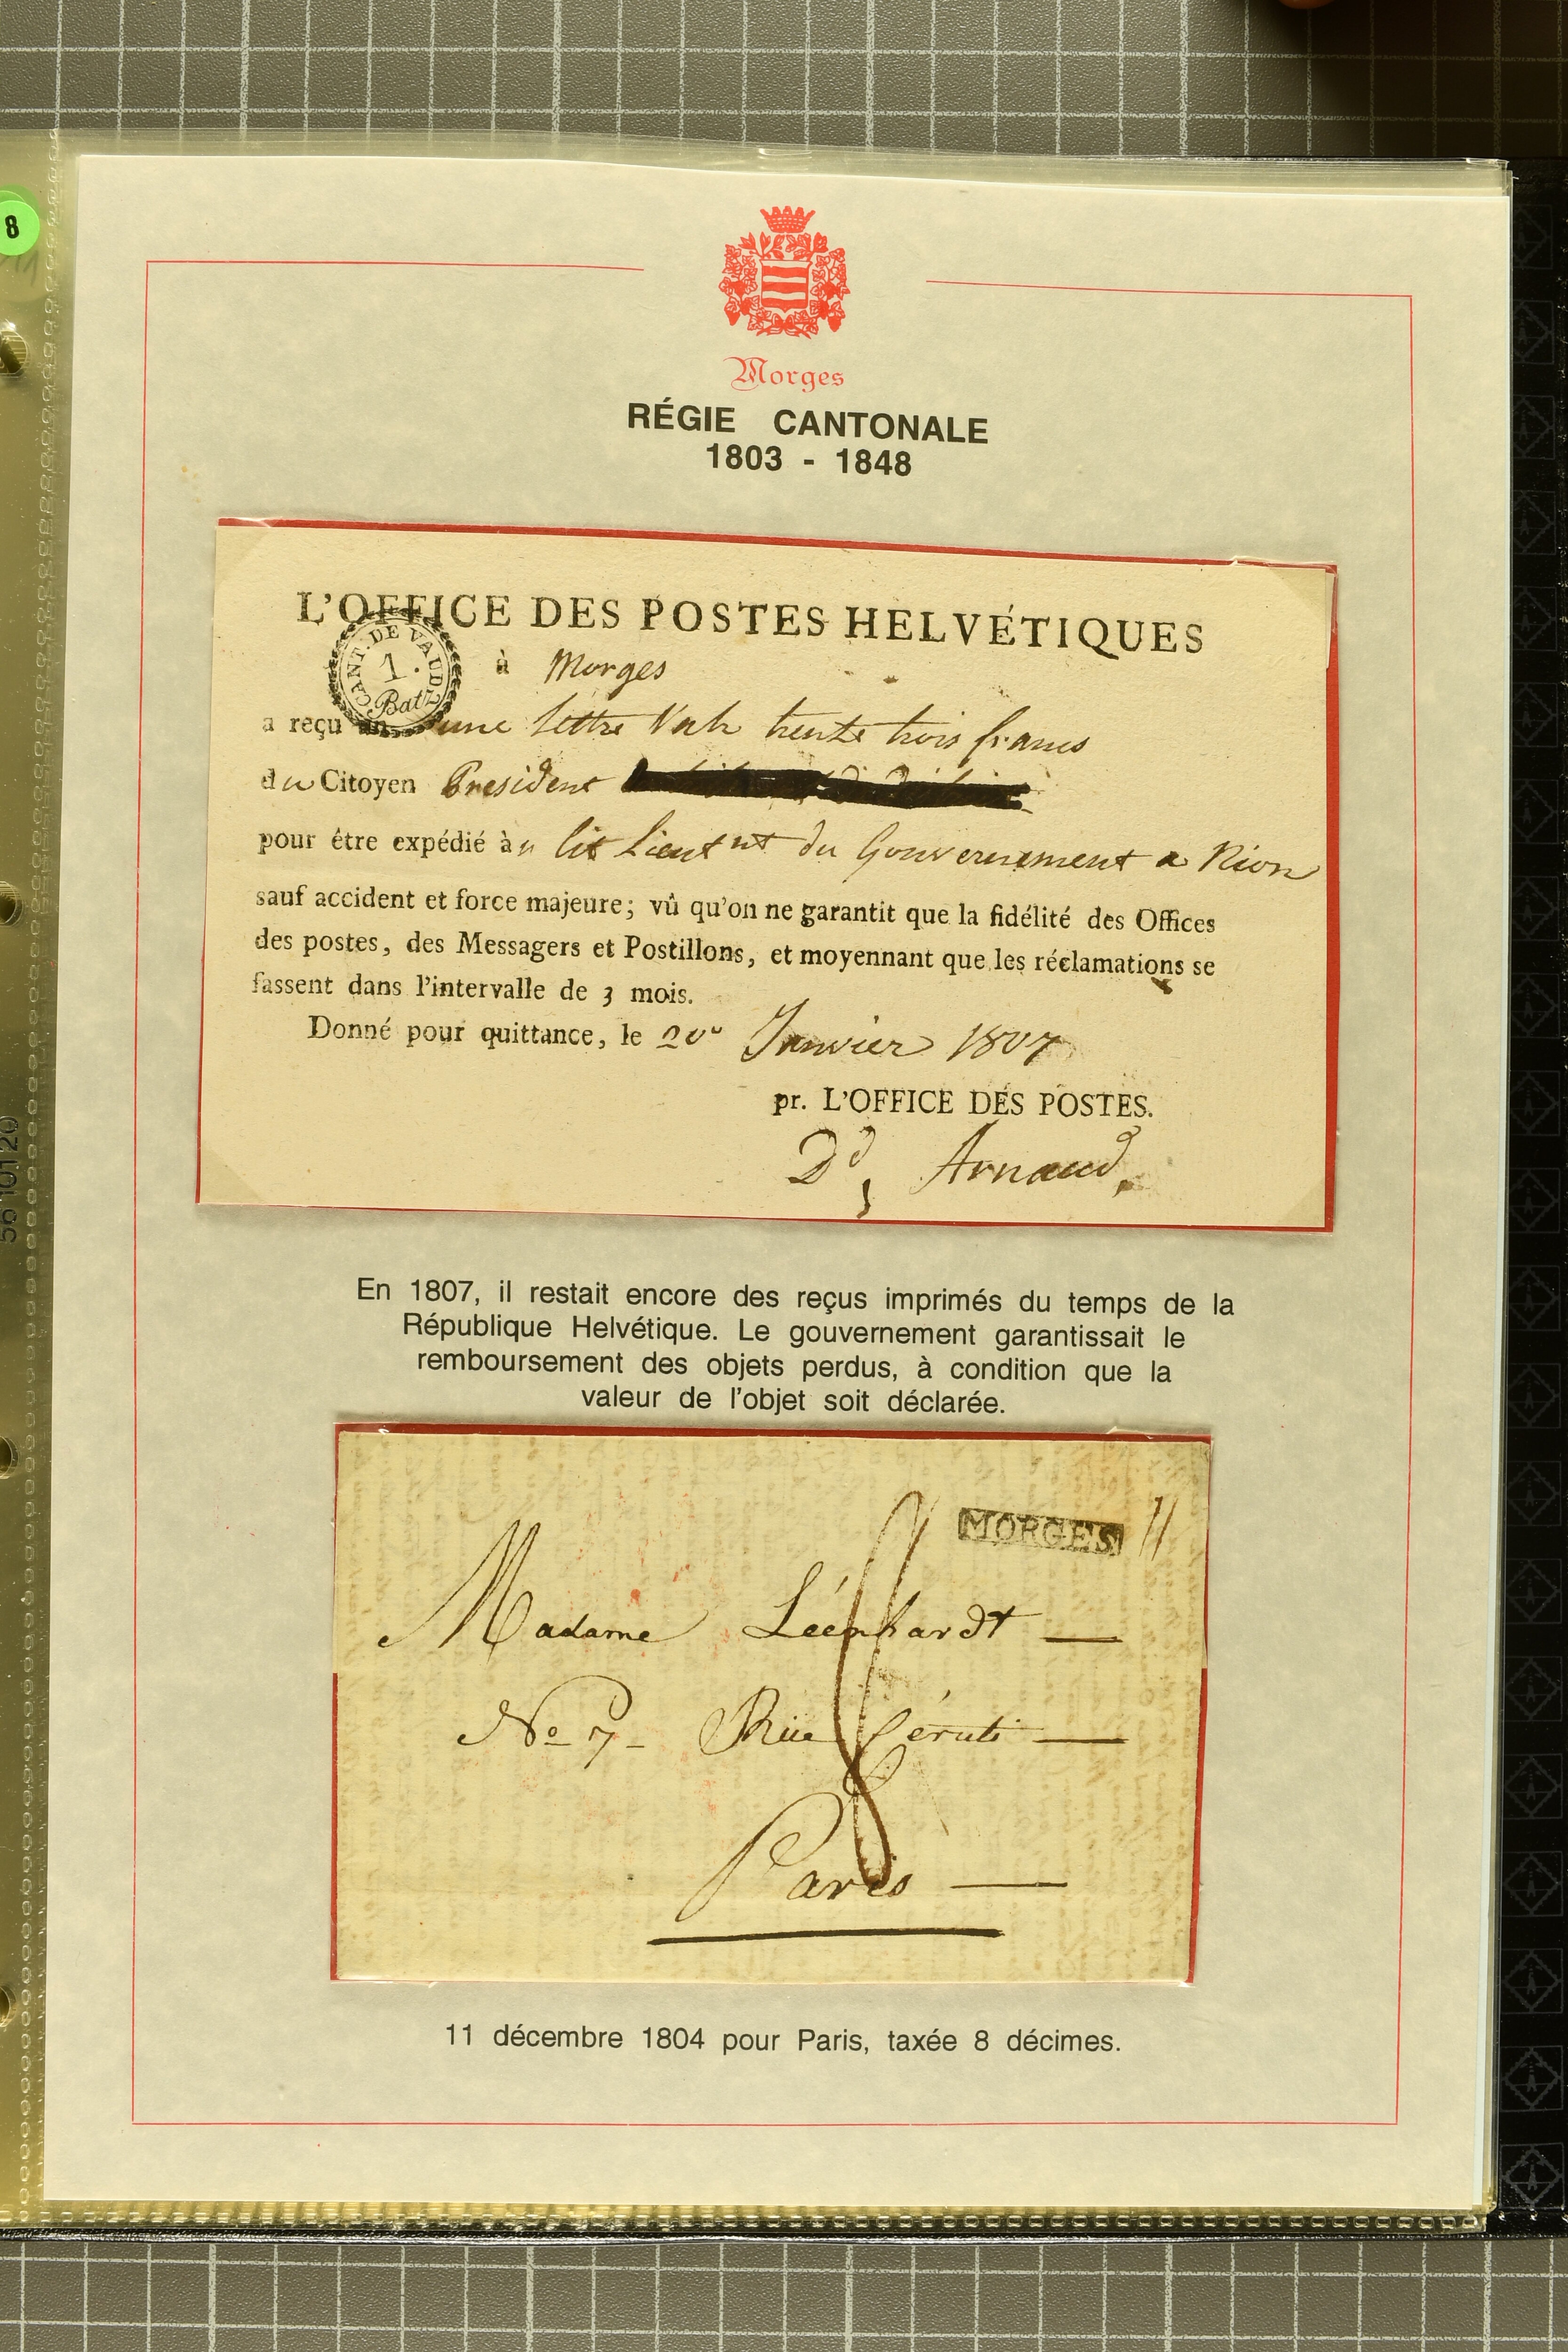 8
Morges
RÉGIE CANTONALE
1803 - 1848
L'OFFICE DES POSTES HELVÉTIQUES
CANT. DE VAUD.
1.
Batz
à Morges
a reçu une lettre trente trois francs
du Citoyen President
pour étre expédié à Lieut nt du Gouvernement a Nion
sauf accident et force majeure; vû qu'on ne garantit que la fidélité des Offices
des postes, des Messagers et Postillons, et moyennant que les réclamations se
fassent dans l'intervalle de 3 mois.
Donné pour quittance, le 20e Janvier 1807
pr. L'OFFICE DES POSTES.
Dd Arnaud
En 1807, il restait encore des reçus imprimés du temps de la
République Helvétique. Le gouvernement garantissait le
remboursement des objets perdus, à condition que la
valeur de l'objet soit déclarée.
MORGES 11
8
Madame Léenhardt —
No 7 - Rüe Céruti —
Paris —
11 décembre 1804 pour Paris, taxée 8 décimes.